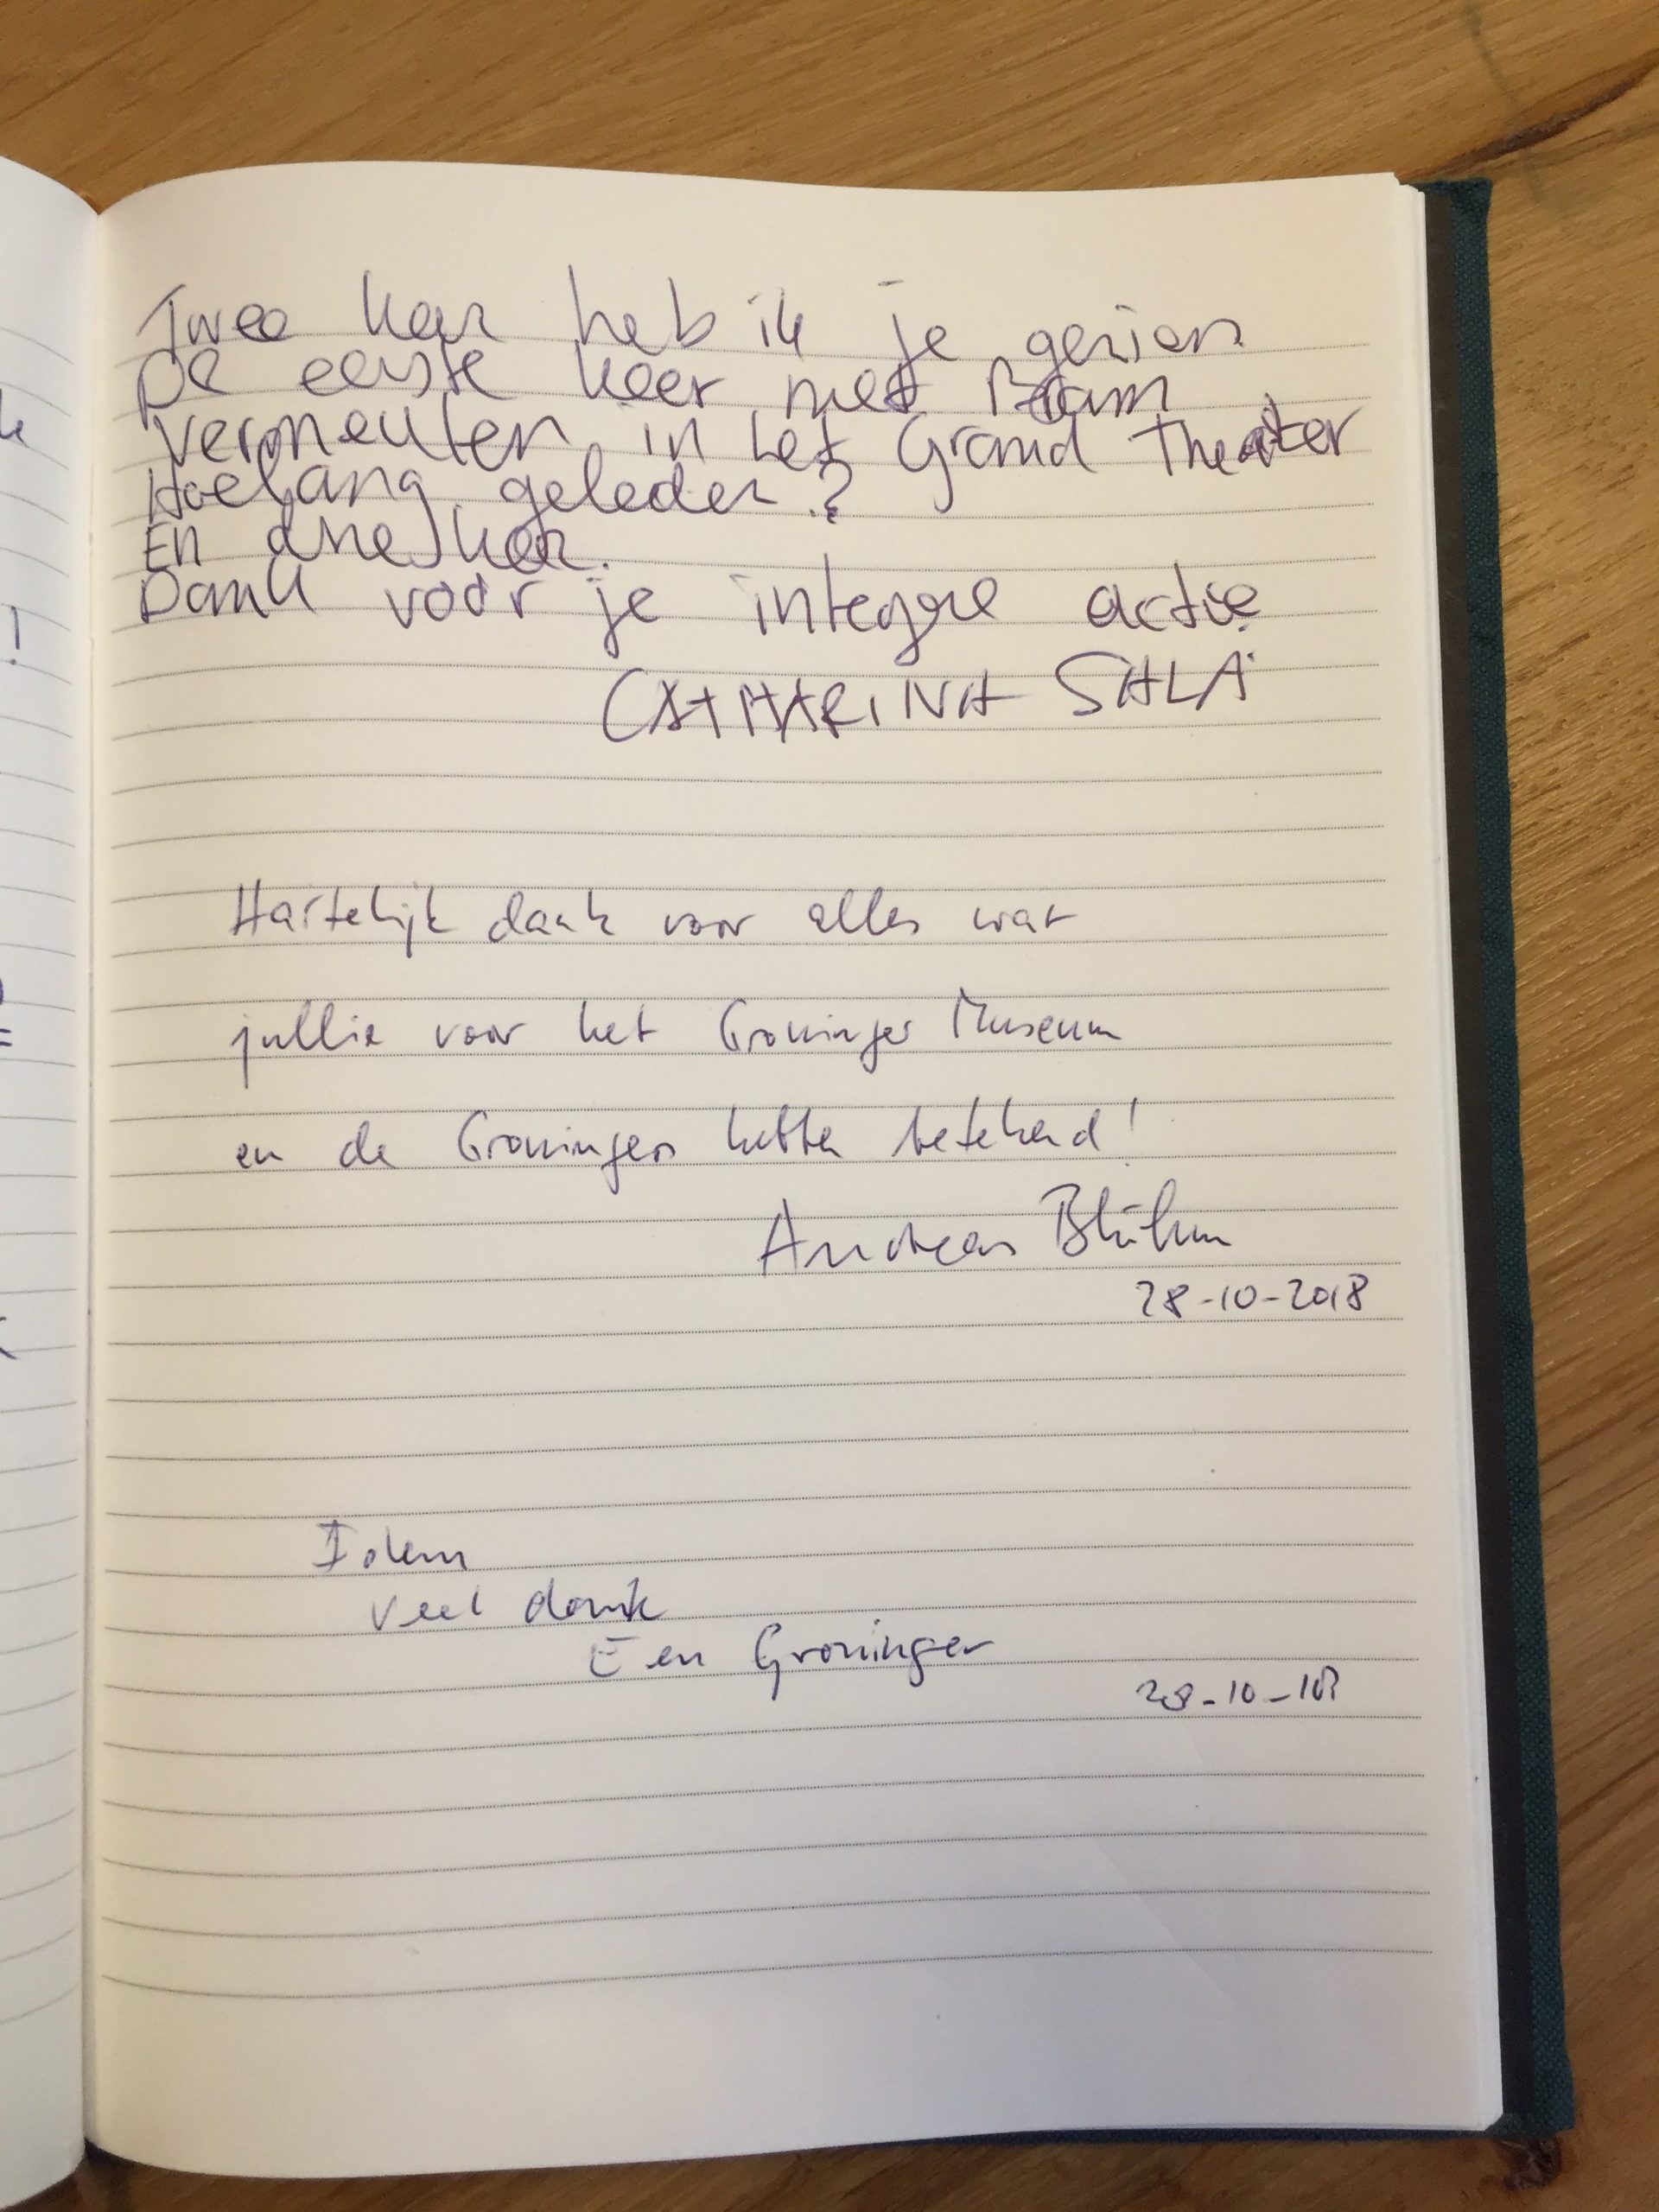 Twee keer heb ik je gezien
De eerste keer met Bram
Vermeulen in het Grand Theater
Hoelang geleden?
En drie keer.
Dank voor je integere actie
CATHARINA SALA
Hartelijk dank voor alles wat
jullie voor het Groninger Museum
en de Groningers hebben betekend!
Andreas Blühm
28-10-2018
Idem
veel dank
Een Groninger
28-10-18
!